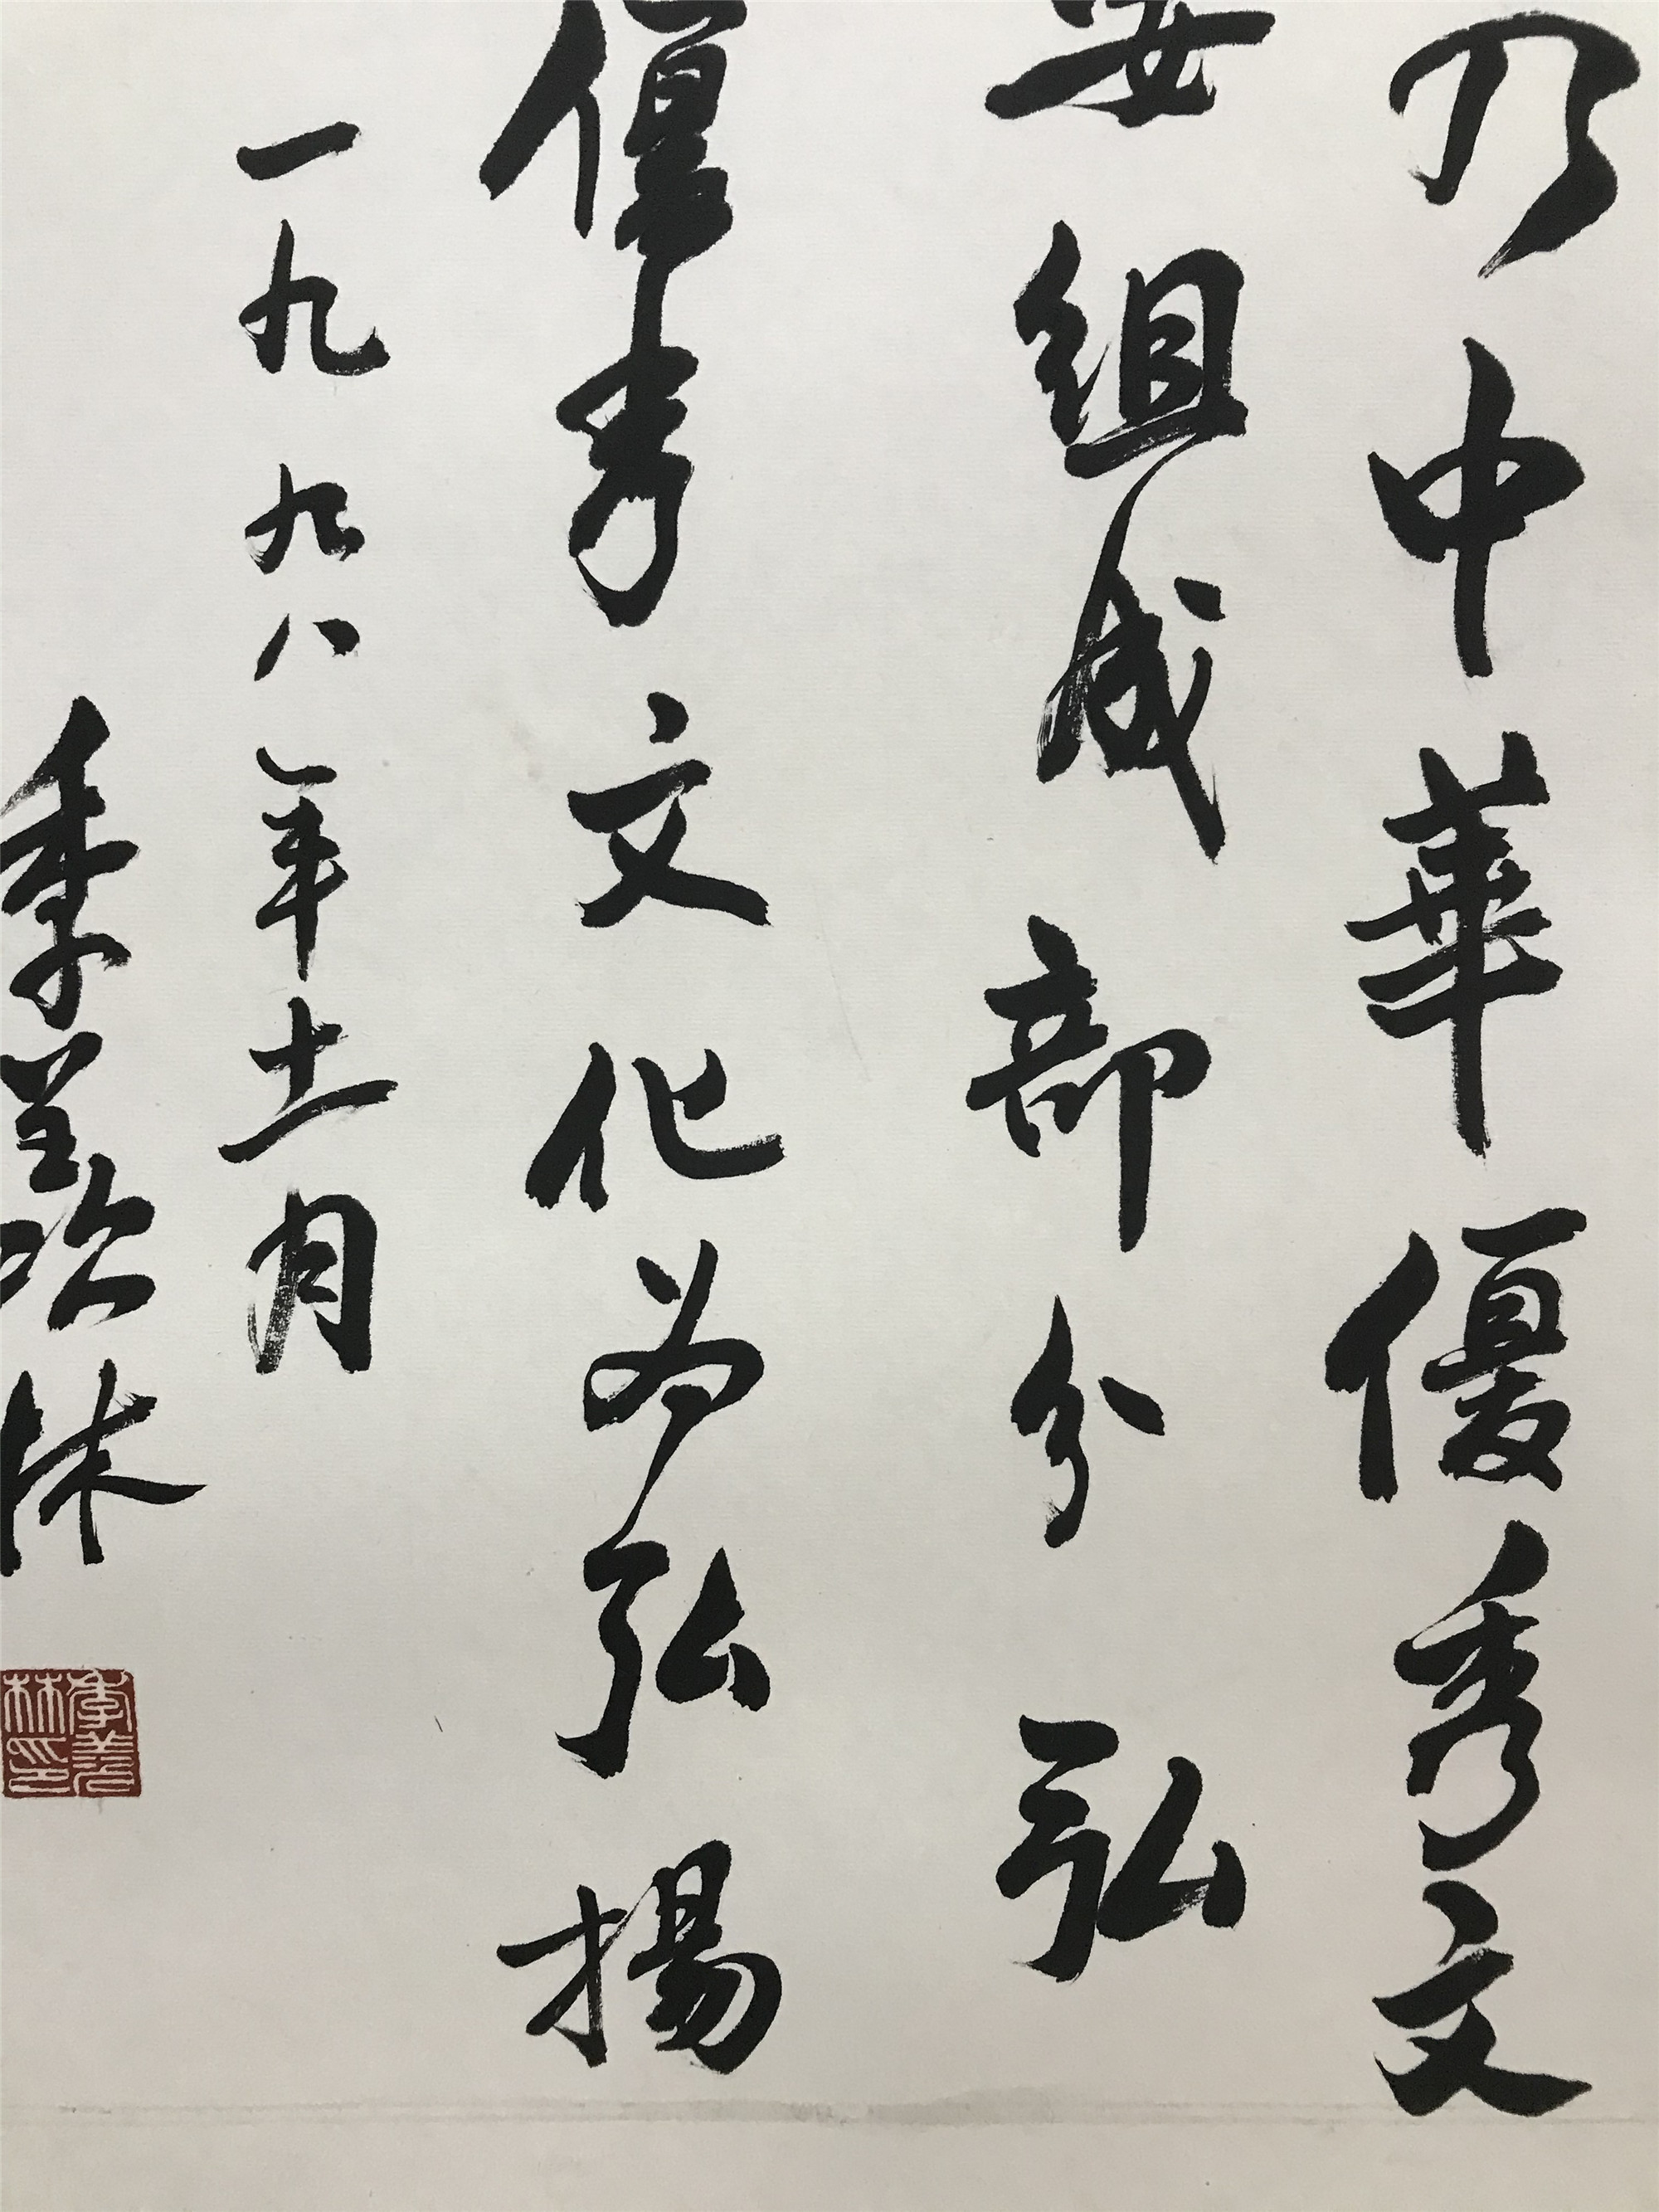 乃中華優秀文
要組成部分弘
優秀文化必弘揚
一九九八年十一月
季羨林
季羨林印